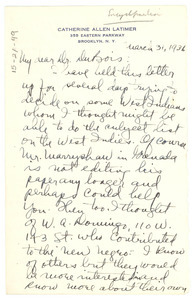 Encyclopedia
CATHERINE ALLEN LATIMER
185 EASTERN PARKWAY
BROOKLYN, N. Y.
March 31, 1936
My dear Dr. DuBois:-
I have held this letter
up for several days trying to
decide on some West Indians
whom I thought might be
able to do the subject list
on the West Indies. Of course
Mr. Marryshow in Grenada
is not editing his
paper any longer and
perhaps could help
you. Then too I thought
of W. A. Domingo, 110 W.
143 St. who contributed
to the New Negro. I know
of others but they would
be more interested and
know more about their own